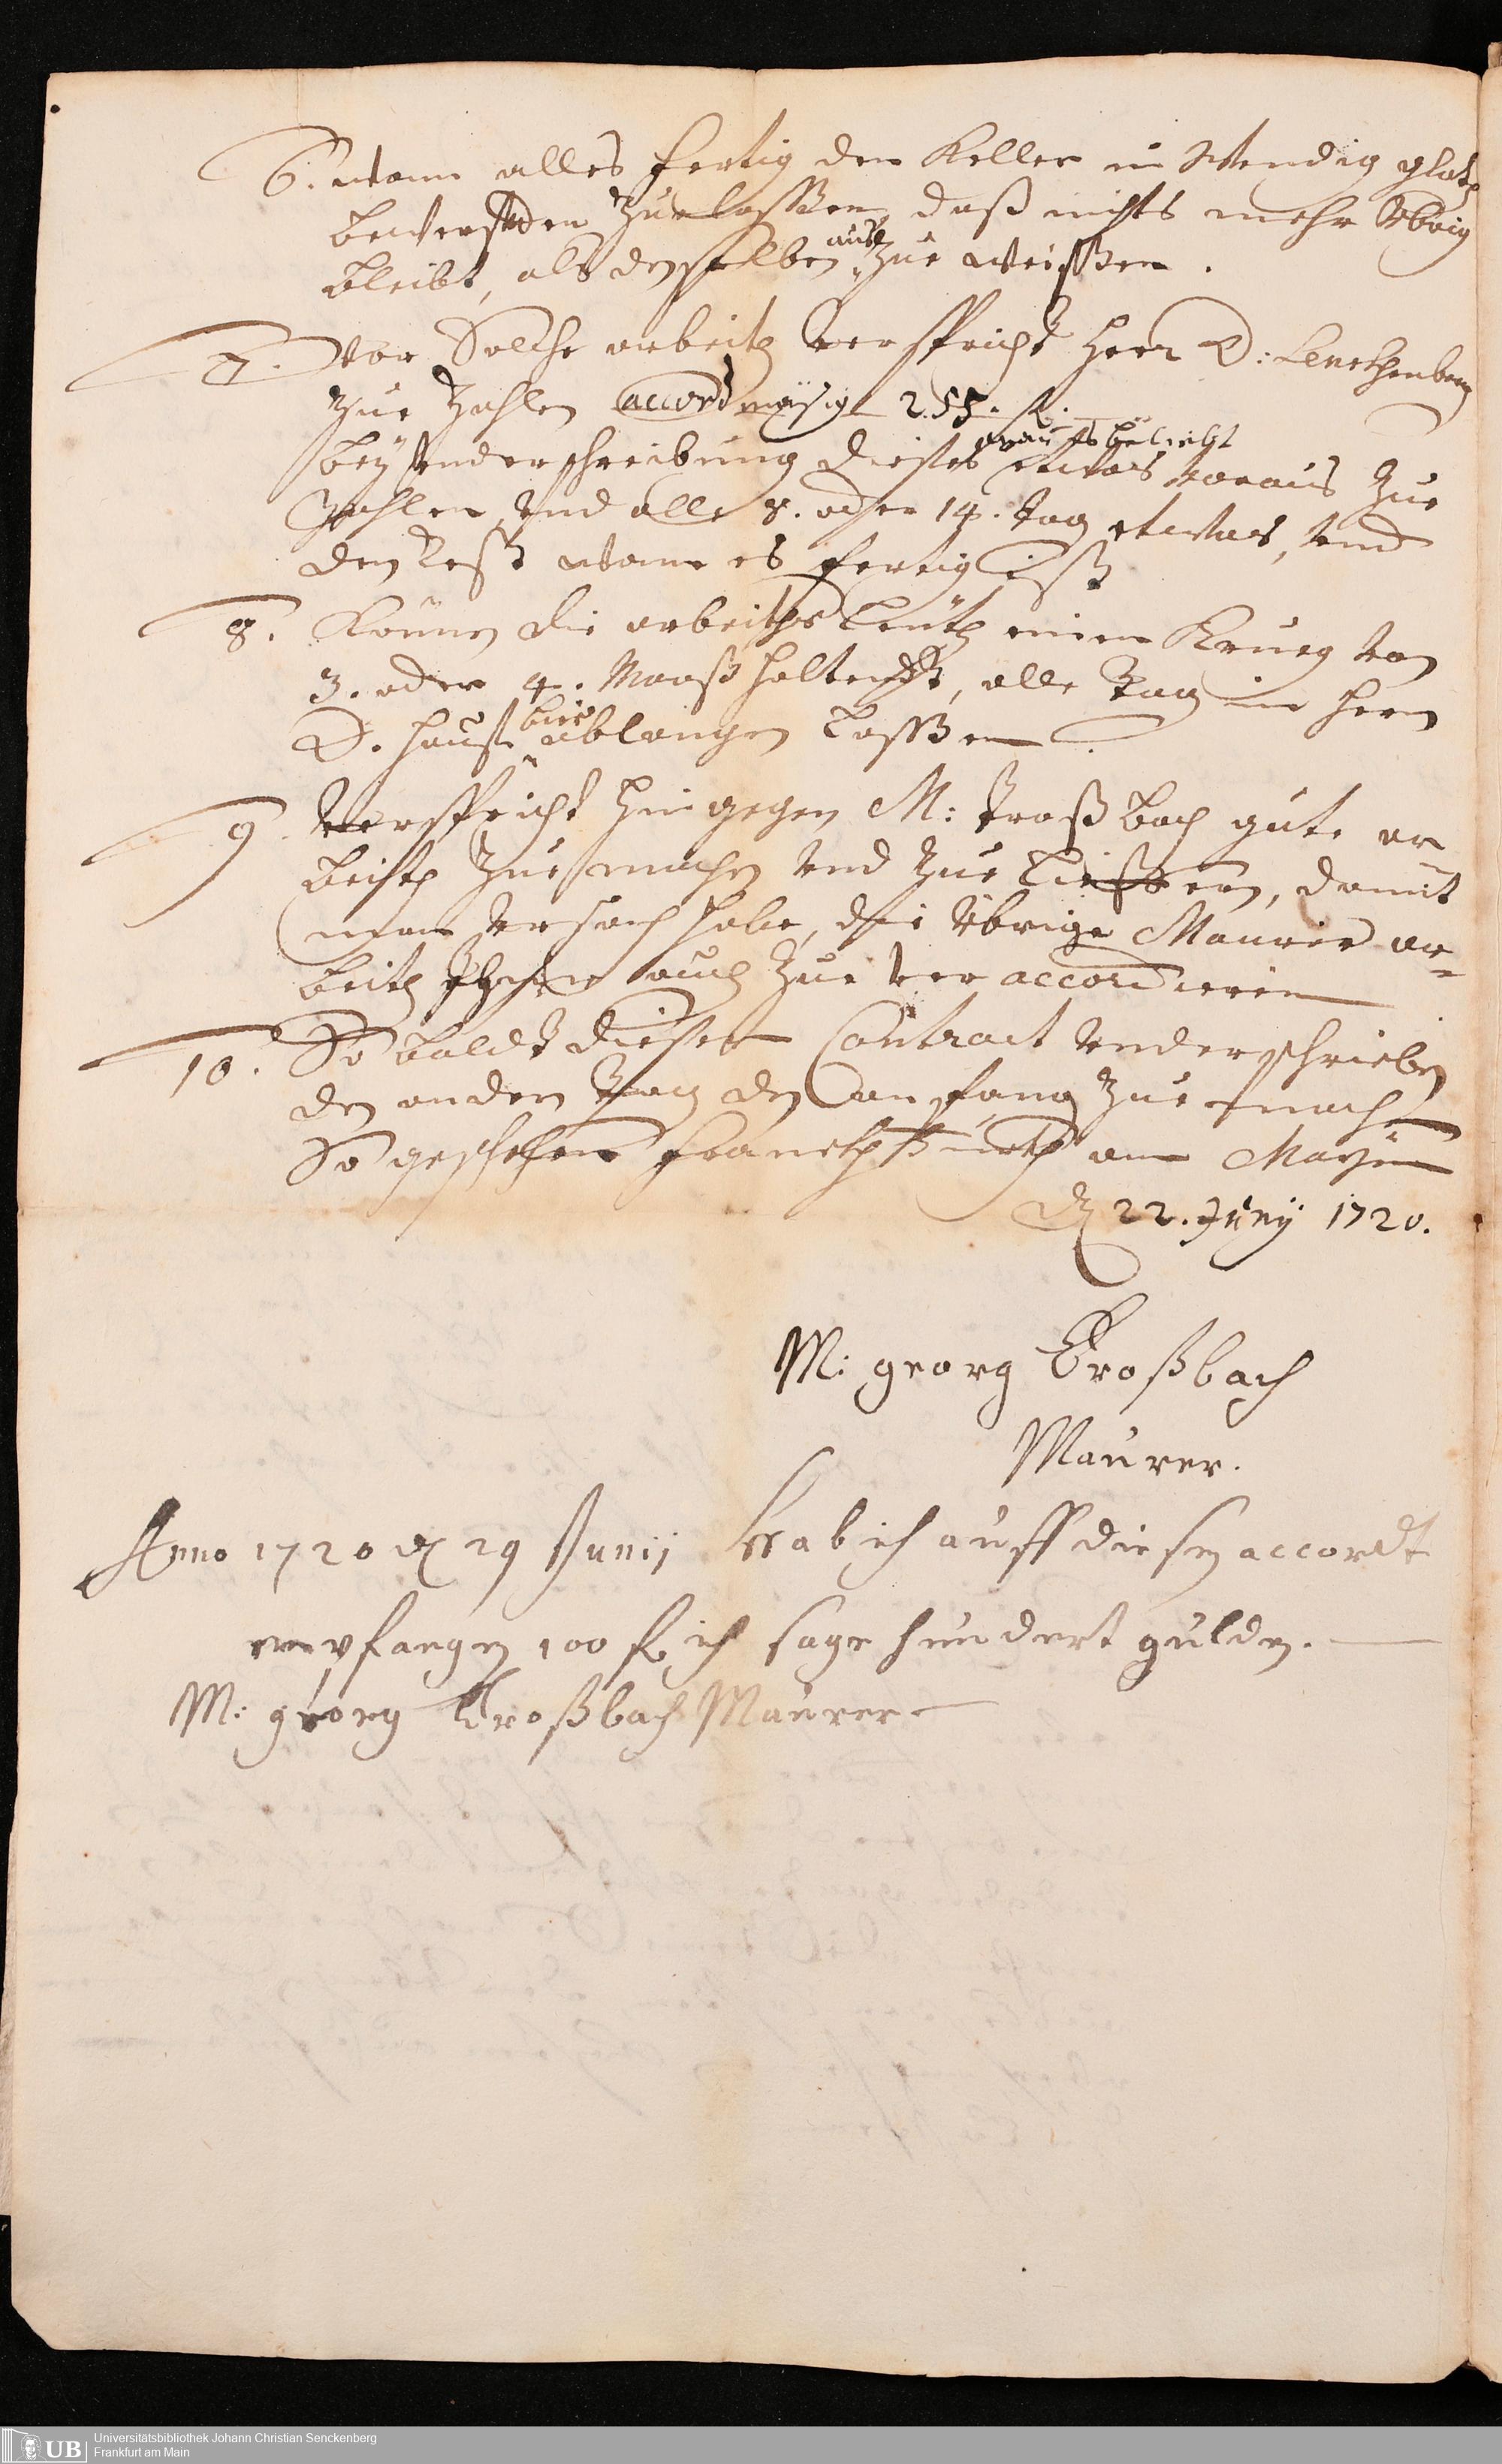 6. Wann alles fertig den Keller in Wendig glath
bewerffen zue lassßen, daß nichts mehr Vbrig
bleibt, als denselben auß zue weissßen.
7. Vor Solche arbeith verspricht Herr D: Lerchenberg
zue Zahlen accord mäsig 255. fl.
bey Vnderschreibung dießes wans beliebt etwas voraus zue
Zahlen Vnd alle 8. oder 14. tag etwas, vnd
den Rest wann es fertig ist
8. Können die arbeiths Leuth einen Krueg von
3. oder 4. Maaß haltendt, alle Tag in Herrn
D. Hauß bier ablangen Lassßen.
9. Verspricht hingegen M: Troßbach gute ar¬
beith zue machen vnd zue Lieffern, damit
man Vrsach habe, die Vbrige Maurer ar¬
beith Ihme auch zue ver accordieren
10. So baldt dießer Contract Vnderschrieben
den andern Tag den anfang zue machen
So geschehen Franckfurth am Mayn
den 22. Juny 1720.
M: georg Troßbach
Maurer.
Anno 1720 den 29 Junij Hab ich auff diesen accordt
empfangen 100 fl ich sage hundert gulden.
M: georg Troßbach Maurer
UB Universitätsbibliothek Johann Christian Senckenberg
Frankfurt am Main